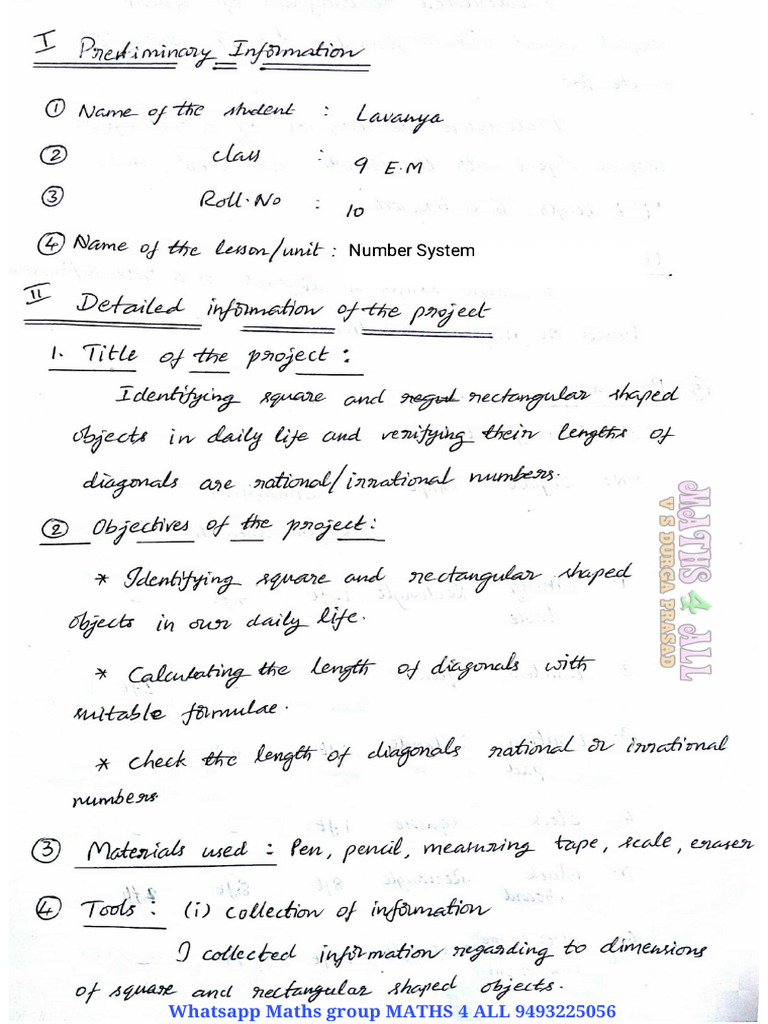 I Preliminary Information
① Name of the student : Lavanya
② class : 9 E.M
③ Roll.No : 10
④ Name of the lesson/unit : Number System
II Detailed information of the project
1. Title of the project :
Identifying square and rectangular shaped
objects in daily life and verifying their lengths of
diagonals are rational/irrational numbers.
② Objectives of the project :
* Identifying square and rectangular shaped
objects in our daily life.
* Calculating the length of diagonals with
suitable formulae.
* check the length of diagonals rational or irrational
numbers
③ Materials used : Pen, pencil, measuring tape, scale, eraser
④ Tools : (i) collection of information
I collected information regarding to dimensions
of square and rectangular shaped objects.
MATHS 4 ALL
V S DURGA PRASAD
Whatsapp Maths group MATHS 4 ALL 9493225056